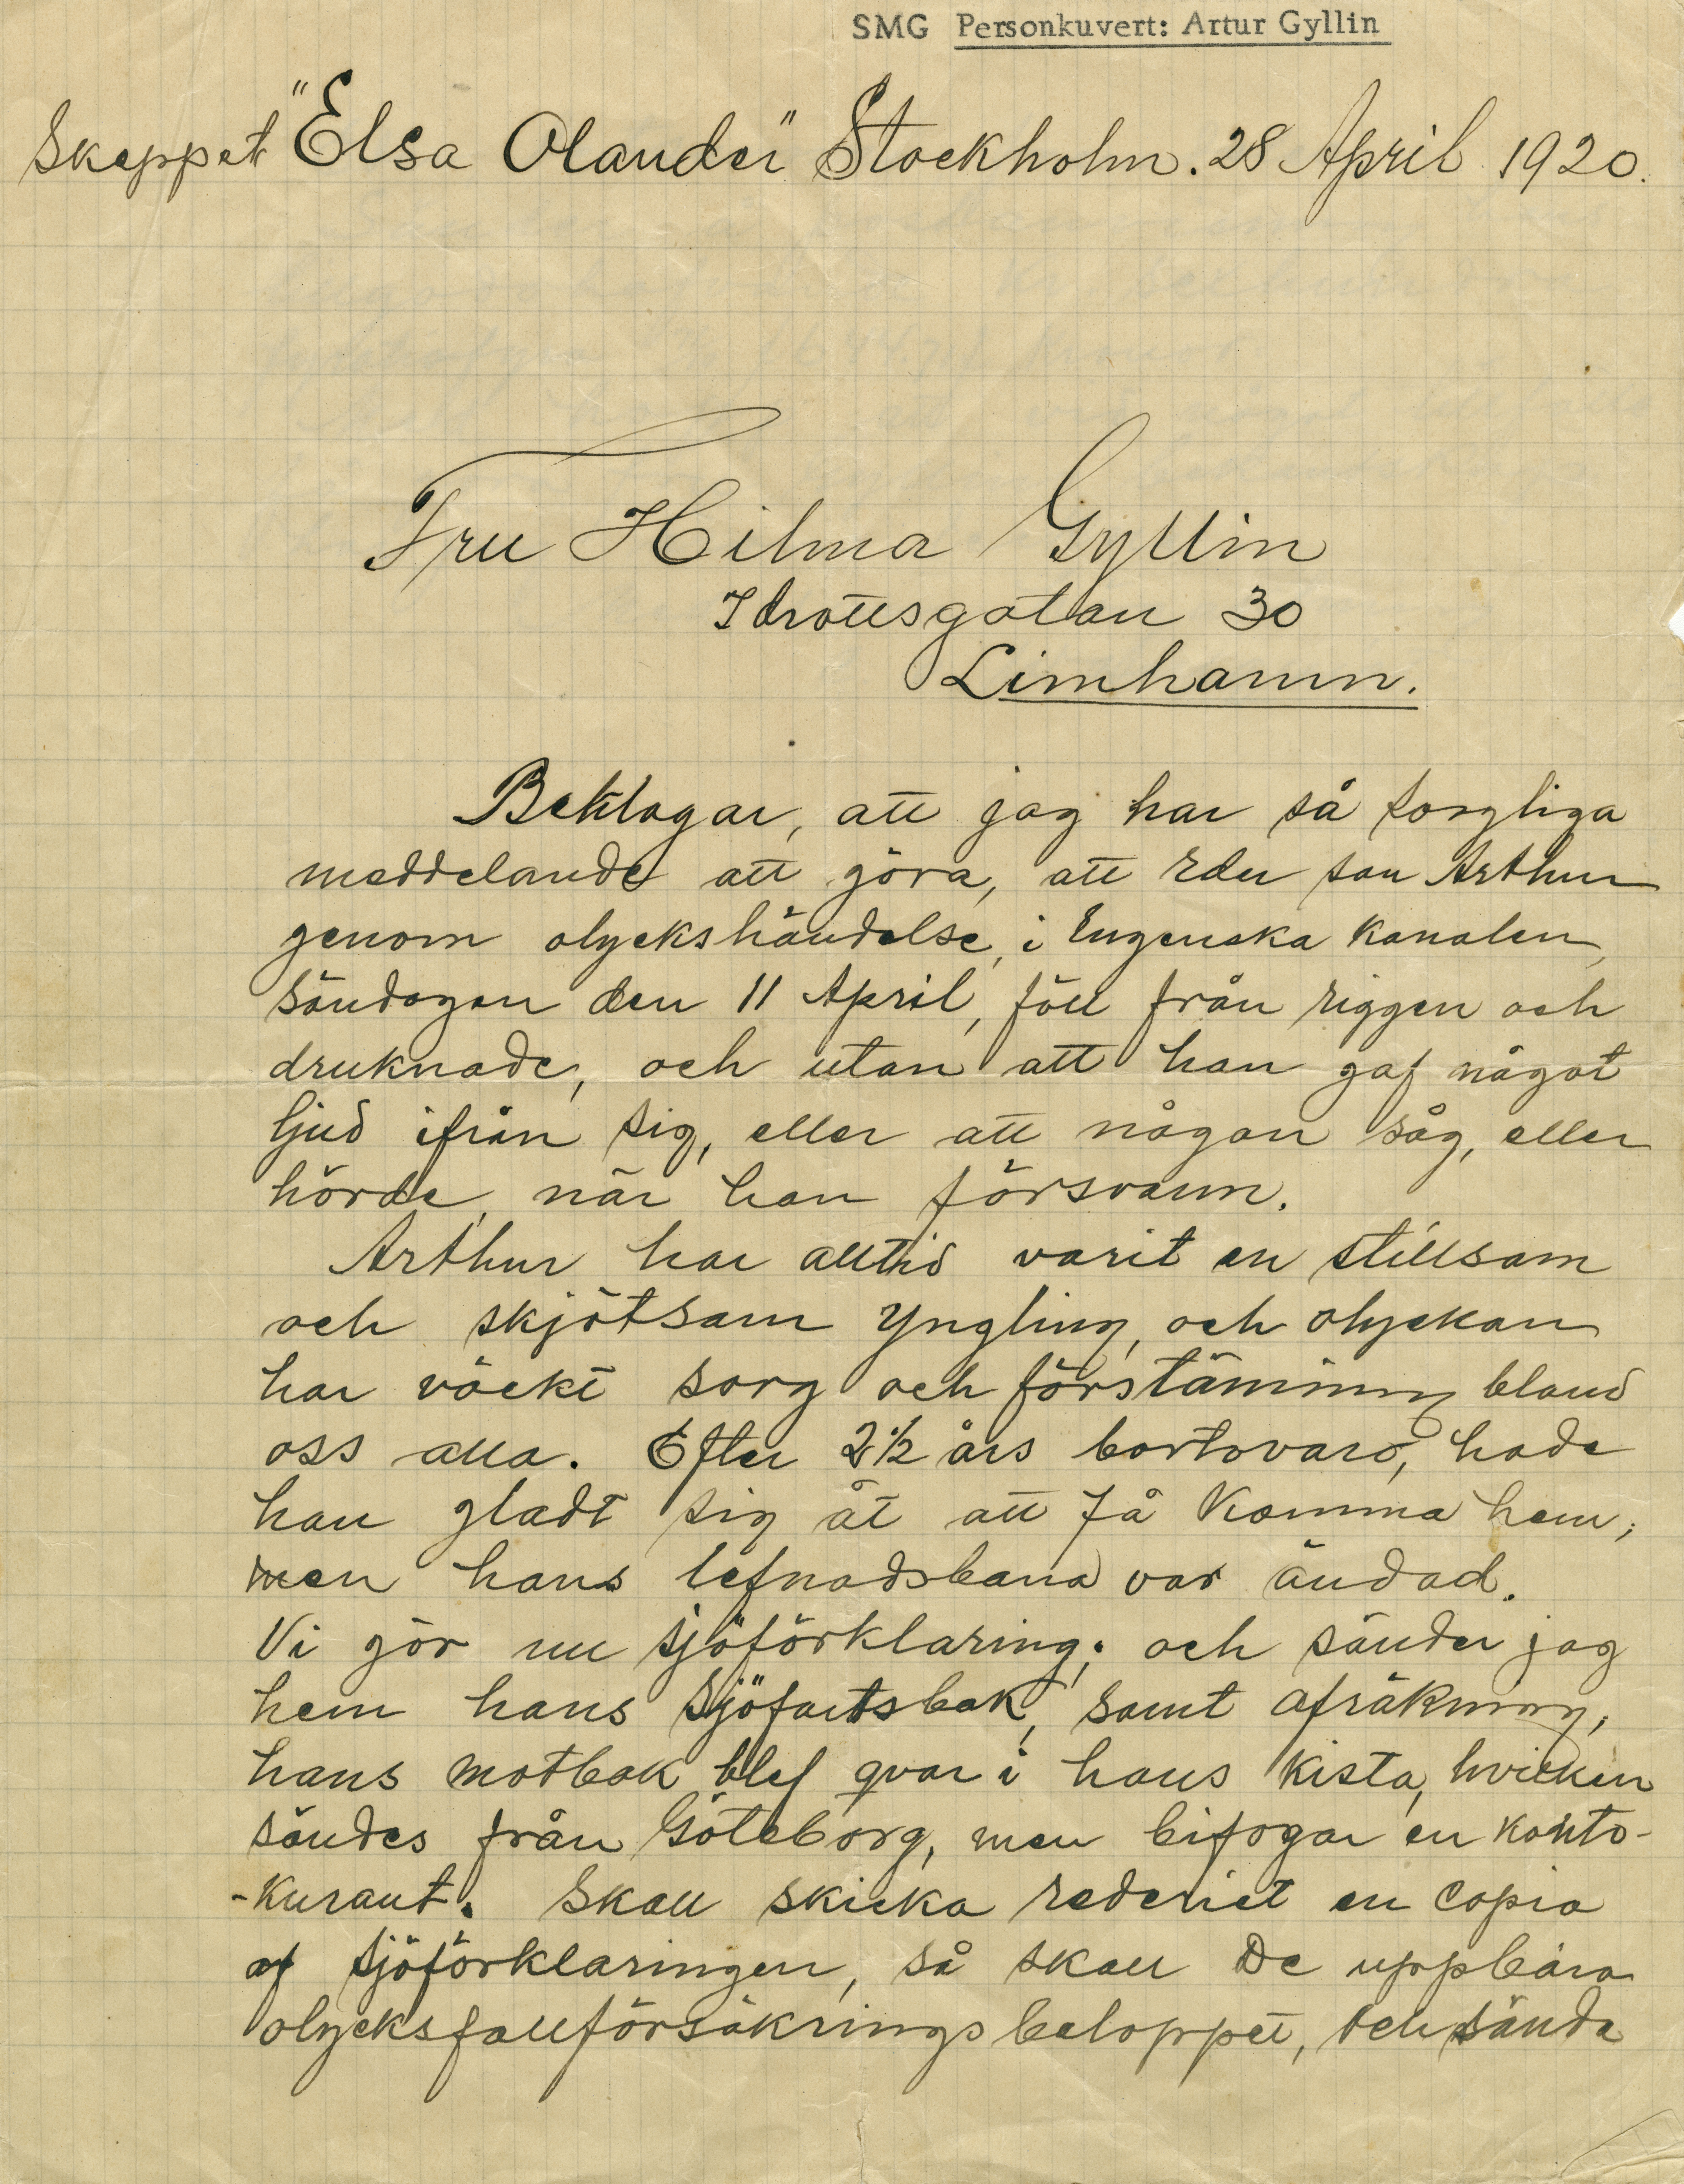 SMG Personkuvert: Artur Gyllin
Skeppet "Elsa Olander" Stockholm. 28 April 1920.
Fru Hilma Gyllin
Idrottsgatan 30
Limhamn.
Beklagar, att jag har så sorgliga
meddelande att göra, att Eder son Arthur
genom olyckshändelse, i Engenska Kanalen,
söndagen den 11 April, föll från riggen och
druknade, och utan att han gaf något
ljud ifrån sig, eller att någon såg, eller
hörde, när han försvann.
Arthur har alltid varit en stillsam
och skjötsam yngling, och olyckan
har väckt sorg och förstämning bland
oss alla. Efter 2 1/2 års bortovaro, hade
han gladt sig åt att få komma hem;
men hans lefnadsbana var ändad.
Vi gör nu sjöförklaring; och sänder jag
hem hans sjöfartsbok, samt afräkning,
hans motbok blef qvar i hans kista, hvilken
sändes från Göteborg, men bifogar en konto-
-kurant. Skall skicka rederiet en copia
af sjöförklaringen, så skall De uppbära
olycksfallförsäkringsbeloppet, och sända